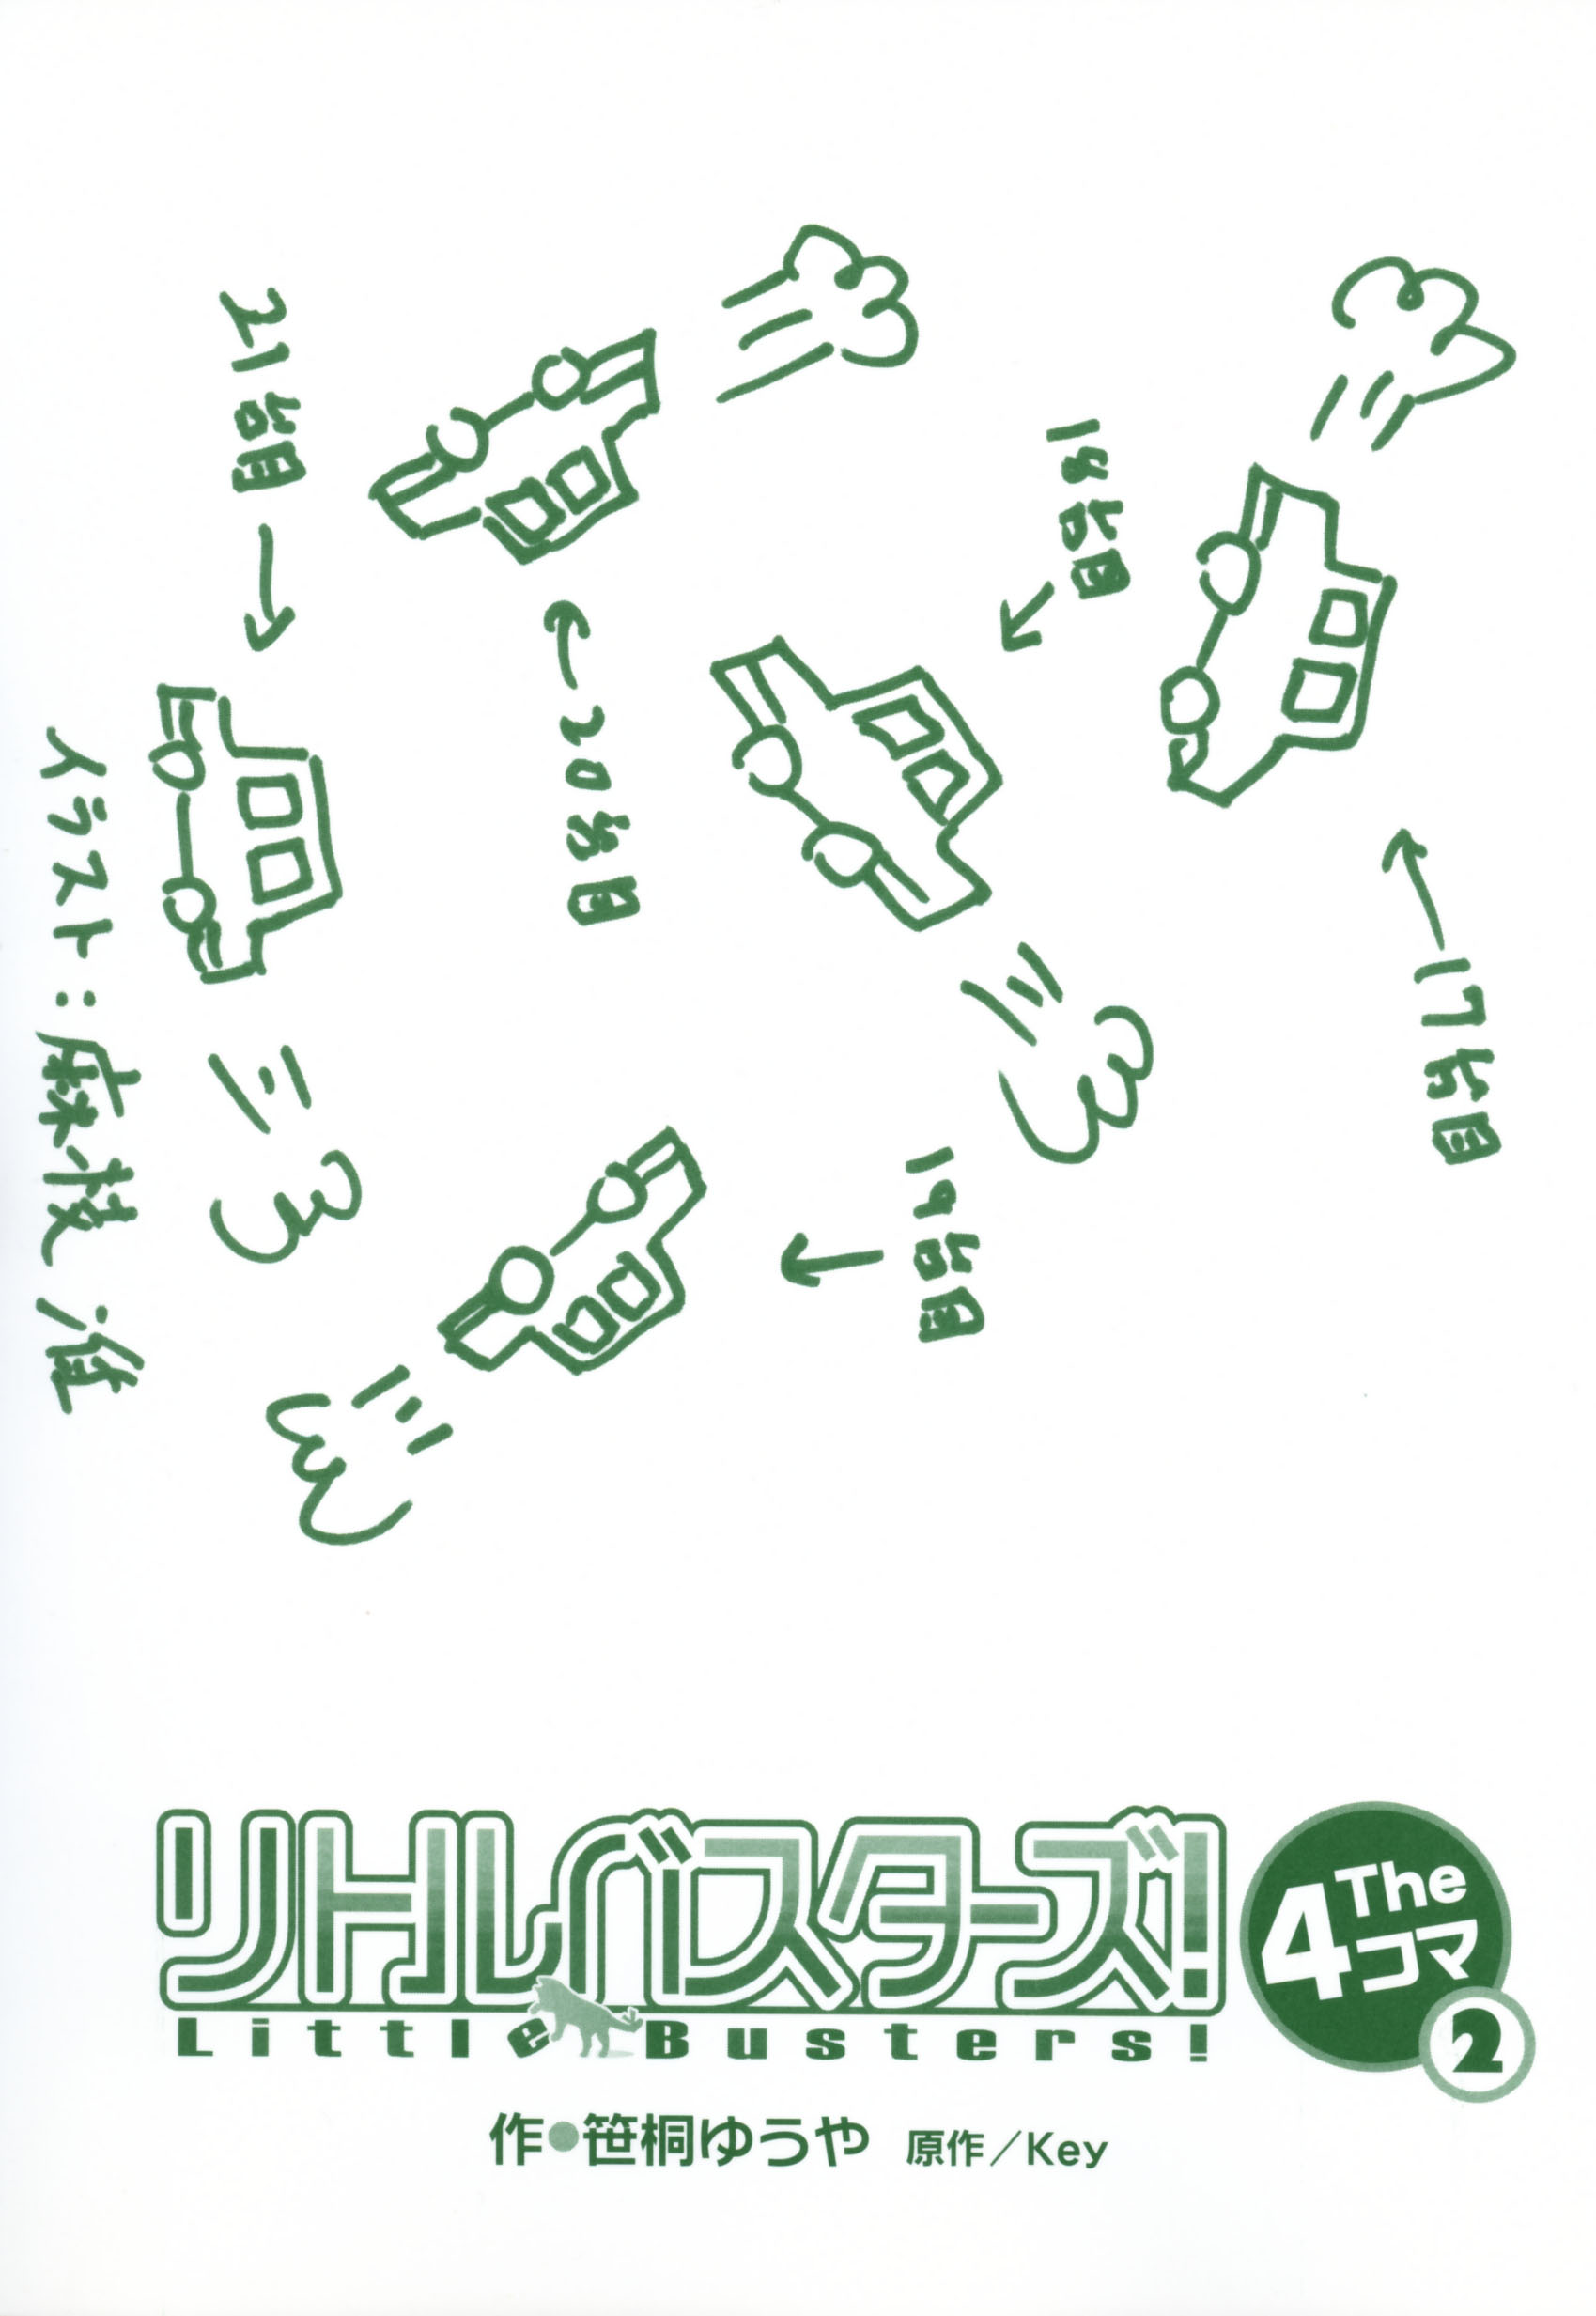 17台目
18台目
19台目
20台目
21台目
イラスト：麻枝 准
リトルバスターズ!
Little Busters!
The
4コマ
2
作●笹桐ゆうや 原作／Key